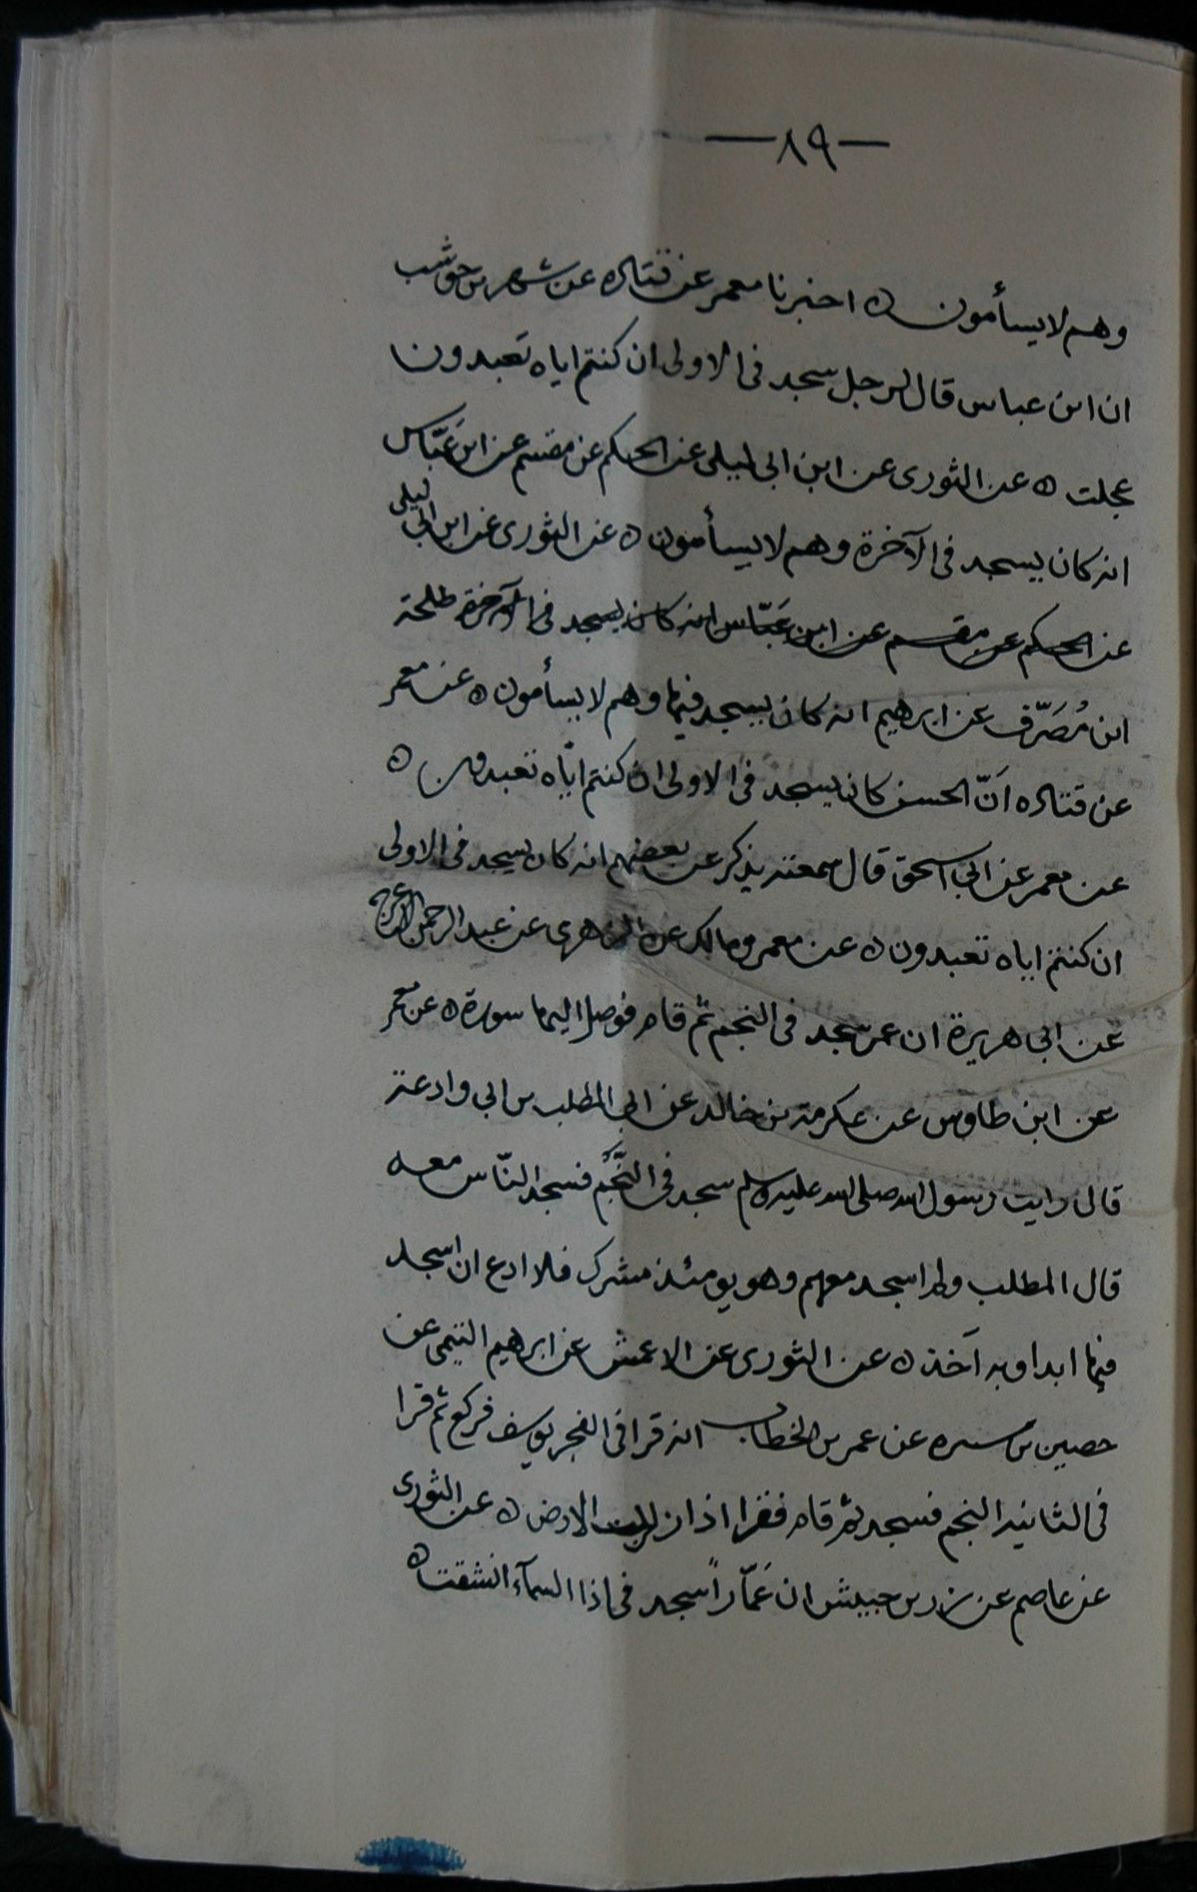 —٨٩—
وهم لا يسأمون ه اخبرنا معمر عن قتاده عن شهر بن حوشب
ان ابن عباس قال لرجل سجد فى الاولى ان كنتم اياه تعبدون
عجلت ه عن الثورى عن ابن ابى ليلى عن الحكم عن مقسم عن ابن عَبّاس
انه كان يسجد فى الآخرة وهم لا يسأمون ه عن الثورى عن ابن ابى ليلى
عن الحكم عن مقسم عن ابن عَبّاس انه كان يسجد فى الآخرة طلحة
ابن مُصَرّف عن ابرهيم انه كان يسجد فيها وهم لا يسأمون ه عن معمر
عن قتاده اَنّ الحسن كان يسجد فى الاولى ان كنتم ايّاه تعبدون ه
عن معمر عن ابى اسحق قال سمعته يذكر عن بعضهم انه كان يسجد فى الاولى
ان كنتم اياه تعبدون ه عن معمر ومالك عن الزهرى عن عبد الرحمن الاعرج
عن ابى هريرة ان عمر سجد فى النجم ثم قام فوصل اليها سورة ه عن معمر
عن ابن طاوس عن عكرمة بن خالد عن ابى المطلب بن ابى وادعة
قال رايت رسول الله صلى الله عليه وسلم سجد فى النَّجم فسجد النّاس معه
قال المطلب ولم اسجد معهم وهو يومئذ مشرك فلا ادع ان اسجد
فيها ابدا وبه آخذ ه عن الثورى عن الاعمش عن ابرهيم التيمى عن
حصين بن سبره عن عمر بن الخطاب انه قرا فى الفجر يوسف فركع ثم قرا
فى الثانيه النجم فسجد ثم قام فقرا اذا زلزلت الارض ه عن الثورى
عن عاصم عن زر بن حبيش ان عَمّاراً سجد فى اذا السمآء انشقت ه